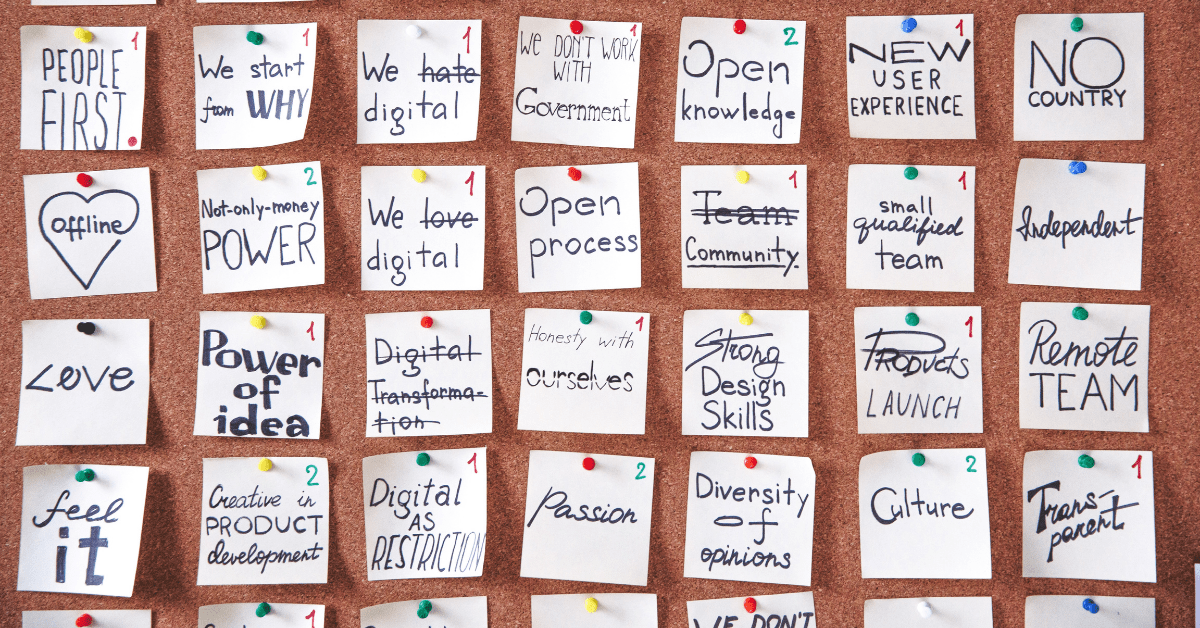 1
PEOPLE
FIRST
1
We start
from WHY
1
We hate
digital
1
We DON'T WORK
WITH
Government
2
Open
knowledge
1
NEW
USER
EXPERIENCE
NO
COUNTRY
offline
2
Not-only-money
POWER
1
We love
digital
Open
process
1
Team
Community.
1
small
qualified
team
Independent
Love
1
Power
of
idea
Digital
Transforma-
tion
1
Honesty with
ourselves
Strong
Design
Skills
1
PRODUCTS
LAUNCH
REMOTE
TEAM
feel
it
2
Creative in
PRODUCT
development
1
Digital
AS
RESTRICTION
2
Passion
Diversity
of
opinions
2
Culture
1
Trans-
parent
1
WE DON'T